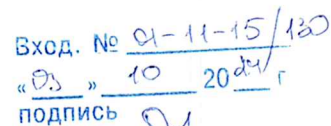 Вход. № 01-11-15/130
«03» 10 2024 г
подпись